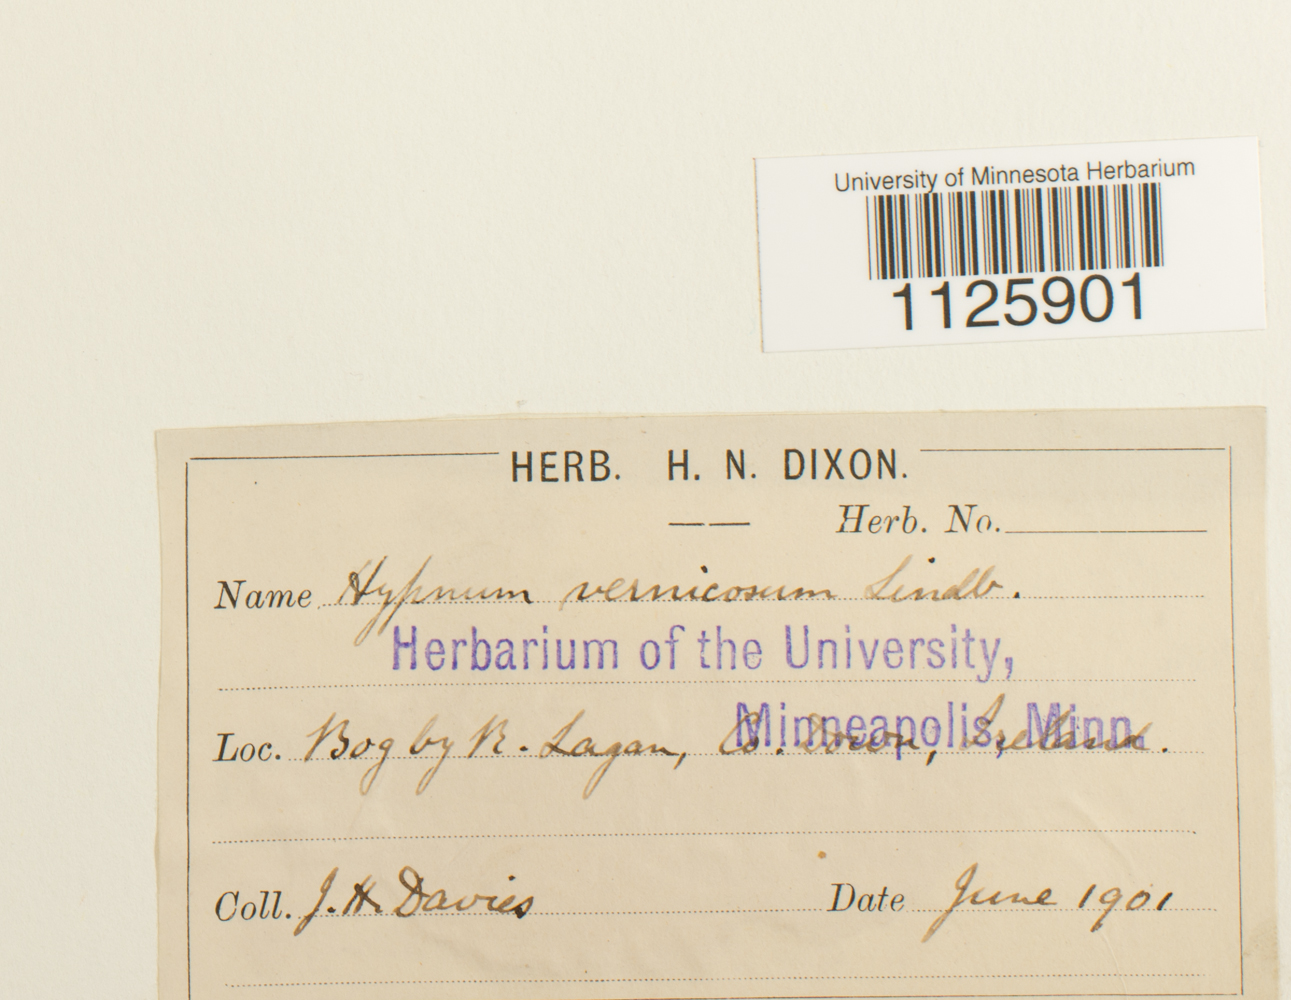 University of Minnesota Herbarium
1125901
HERB. H. N. DIXON.
Herb. No.
Name Hypnum vernicosum Lindb.
Herbarium of the University,
Minneapolis, Minn.
Loc. Bog by R. Lagan, Co. Down, Ireland.
Coll. J. H. Davies Date June 1901